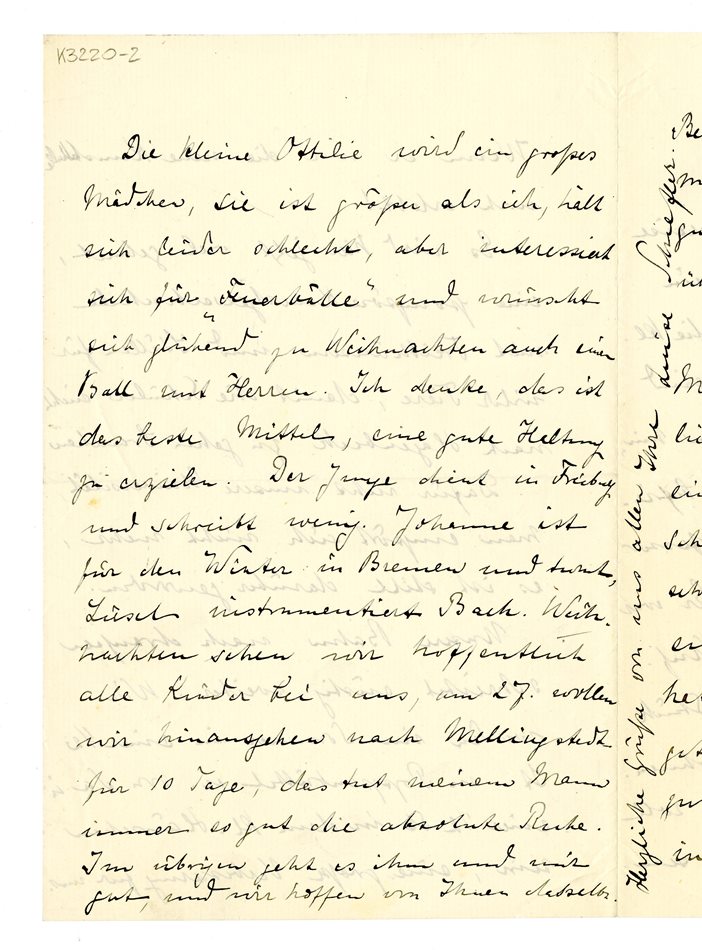 K3220-2
Die kleine Ottilie wird ein großes
Mädchen, sie ist größer als ich, hält
sich leider schlecht, aber interessiert
sich für „Feuerbälle" und wünscht
sich glühend zu Weihnachten auch einen
Ball mit Herren. Ich denke, das ist
das beste Mittel, eine gute Haltung
zu erzielen. Der Junge dient in Freiburg
und schreibt wenig. Johanne ist
für den Winter in Bremen und turnt,
Lüsel instrumentiert Bach. Weih-
nachten sehen wir hoffentlich
alle Kinder bei uns, am 27. wollen
wir hinausgehen nach Mellingstedt
für 10 Tage, das tut meinem Mann
immer so gut die absolute Ruhe.
Im übrigen geht es ihm und mir
gut, und wir hoffen von Ihnen dasselbe.
Herzliche Grüße von uns allen Ihre Luise Schiefler.
Be